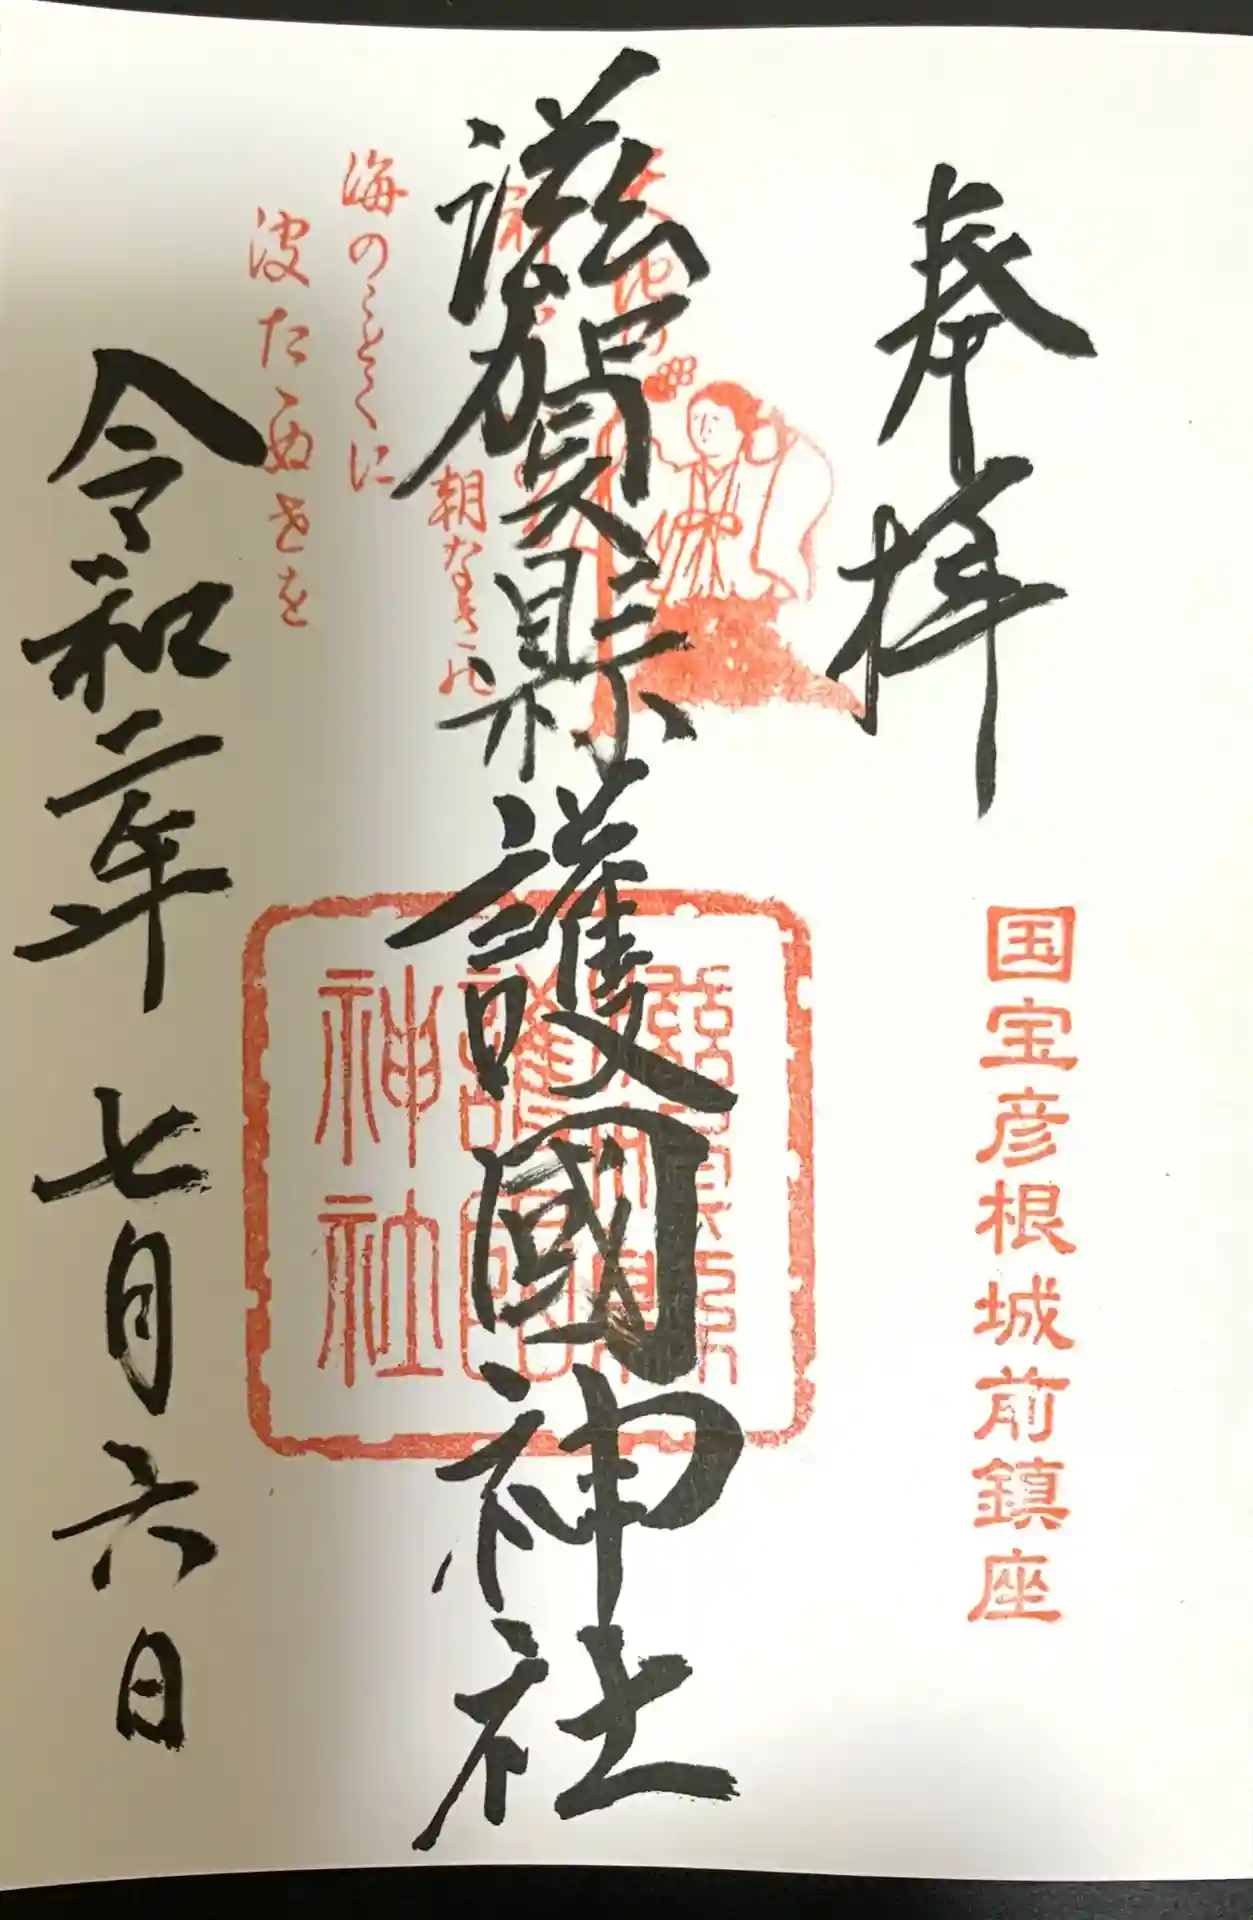 奉拝
国宝彦根城前鎮座
滋賀縣護國神社
朝なきの
海のことくに
波たゝぬ世を
護國
神社
令和二年七月六日